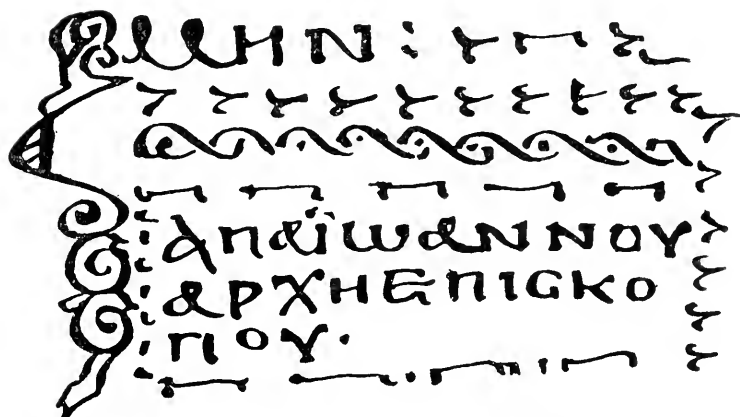 ⲁⲙⲏⲛ:
ⲁⲡⲁⲓ̈ⲱⲁⲛⲛⲟⲩ
ⲁⲣⲭⲏⲉⲡⲓⲥⲕⲟ
ⲡⲟⲩ·